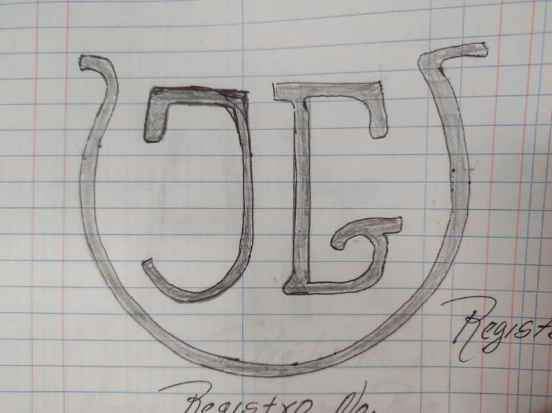 JG
Regist
Registro No